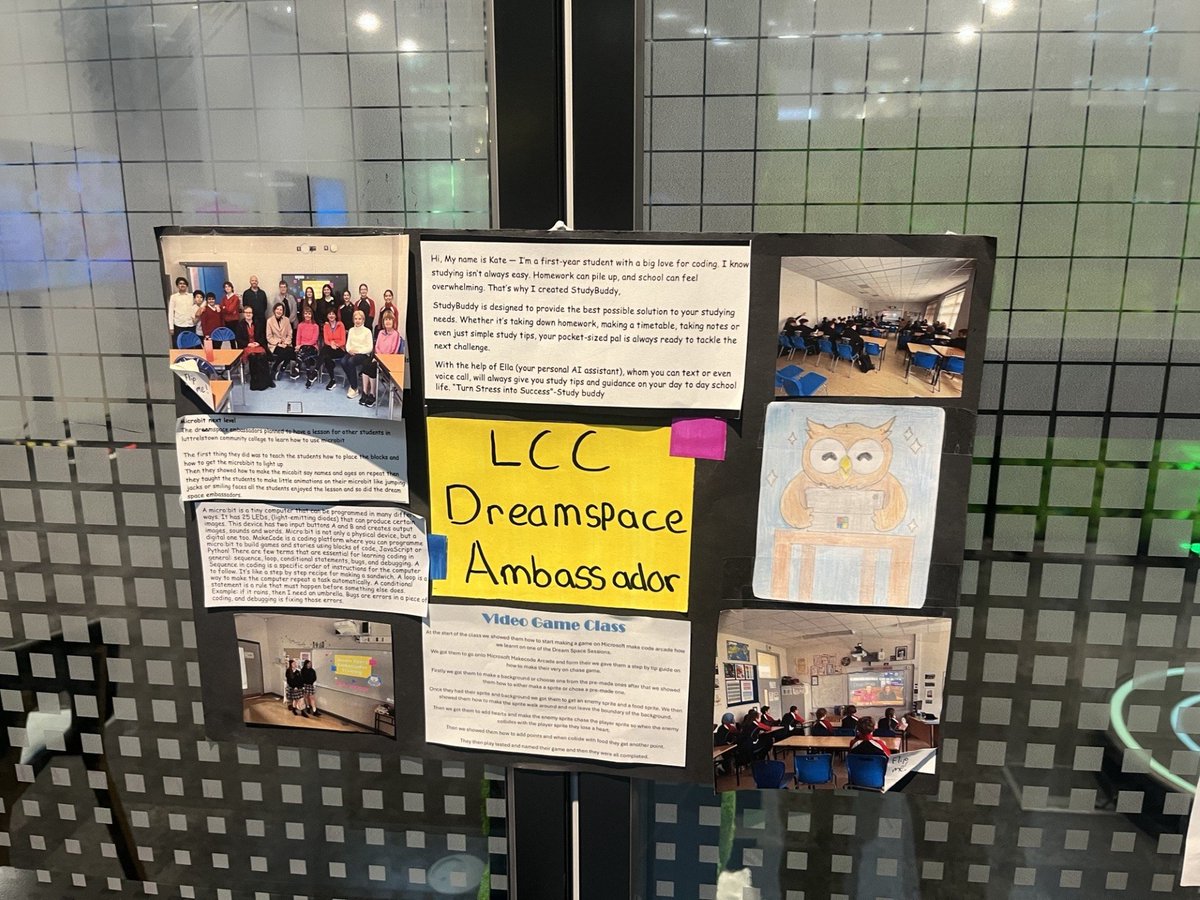 Hi, My name is Kate – I'm a first-year student with a big love for coding. I know
studying isn't always easy. Homework can pile up, and school can feel
overwhelming. That's why I created StudyBuddy,
StudyBuddy is designed to provide the best possible solution to your studying
needs. Whether it's taking down homework, making a timetable, taking notes or
even just simple study tips, your pocket-sized pal is always ready to tackle the
next challenge.
With the help of Ella (your personal AI assistant), whom you can text or even
voice call, will always give you study tips and guidance on your day to day school
life. "Turn Stress into Success"-Study buddy
Flip
me!
Microbit next level
The dreamspace embassadors planned to have a lesson for other students in
luttrelstown community college to learn how to use microbit
The first thing they did was to teach the students how to place the blocks and
how to get the microbibit to light up
Then they showed how to make the micobit say names and ages on repeat then
they taught the students to make little animations on their microbit like jumping
jacks or smiling faces all the students enjoyed the lesson and so did the dream
space embassadors.
A micro:bit is a tiny computer that can be programmed in many diff
ways. It has 25 LEDs, (light-emitting diodes) that can produce certain
images. This device has two input buttons A and B and creates output
images, sounds and words. Micro:bit is not only a physical device, but a
digital one too. MakeCode is a coding platform where you can programme
micro:bit to build games and stories using blocks of code, JavaScript or
Python! There are few terms that are essential for learning coding in
general: sequence, loop, conditional statements, bugs, and debugging. A
Sequence in coding is a specific order of instructions for the computer
to follow. It's like a step by step recipe for making a sandwich. A loop is a
way to make the computer repeat a task automatically. A conditional
statement is a rule that must happen before something else does.
Example: if it rains, then I need an umbrella. Bugs are errors in a piece of
coding, and debugging is fixing those errors.
LCC
Dreamspace
Ambassador
Video Game Class
At the start of the class we showed them how to start making a game on Microsoft make code arcade how
we learnt on one of the Dream Space Sessions.
We got them to go onto Microsoft Makecode Arcade and form their we gave them a step by tip guide on
how to make their very on chase game.
Firstly we got them to make a background or choose one from the pre-made ones after that we showed
them how to either make a sprite or chose a pre-made one.
Once they had their sprite and background we got them to get an enemy sprite and a food sprite. We then
showed them how to make the sprite walk around and not leave the boundary of the background.
Then we got them to add hearts and make the enemy sprite chase the player sprite so when the enemy
collides with the player sprite they lose a heart.
Then we showed them how to add points and when collide with food they get another point.
They then play tested and named their game and then they were all completed.
Flip
me!